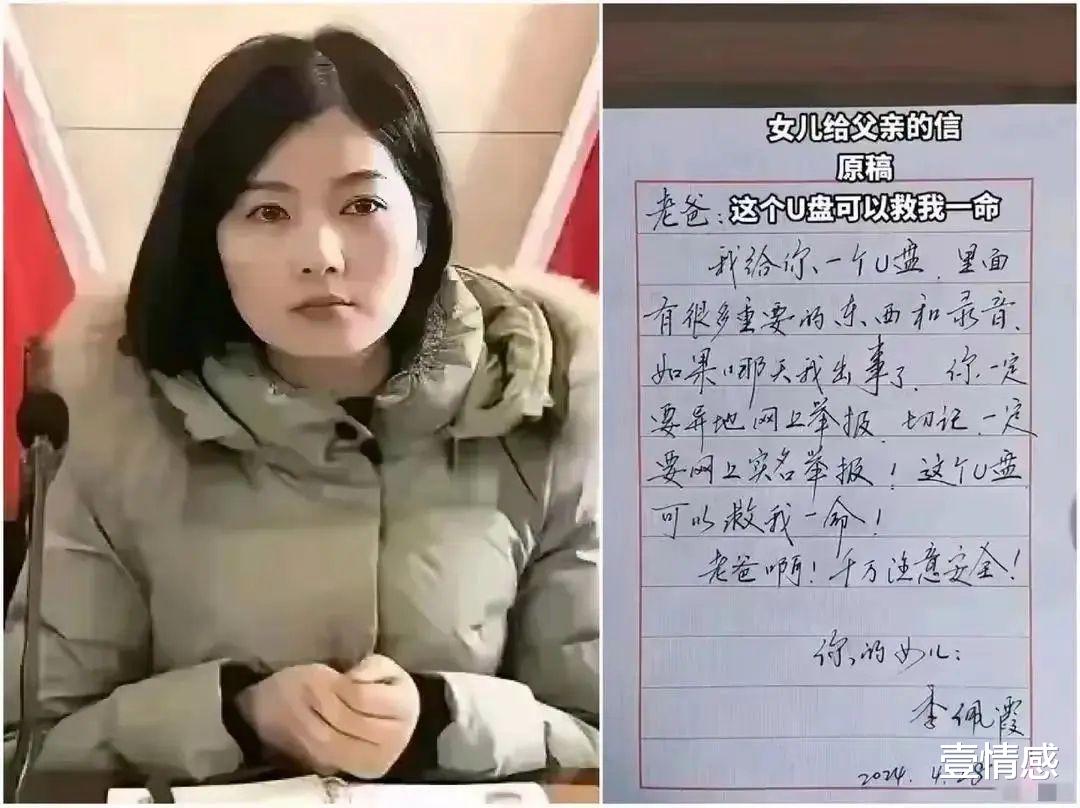 女儿给父亲的信
原稿
这个U盘可以救我一命
老爸:
我给你一个U盘,里面
有很多重要的东西和录音,
如果哪天我出事了,你一定
要异地网上举报,切记,一定
要网上实名举报!这个U盘
可以救我一命!
老爸啊!千万注意安全!
你的女儿:
李佩霞
2024.4.28
壹情感